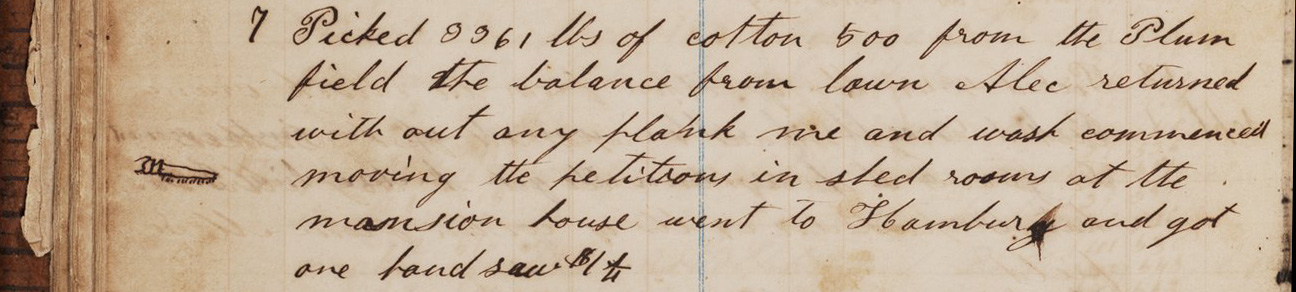 7 Picked 3361 lbs of cotton 500 from the Plum
field the balance from lawn Alec returned
with out any plank me and wash commenced
moving the petitions in shed rooms at the
mansion house went to Hamburg and got
one hand saw $1